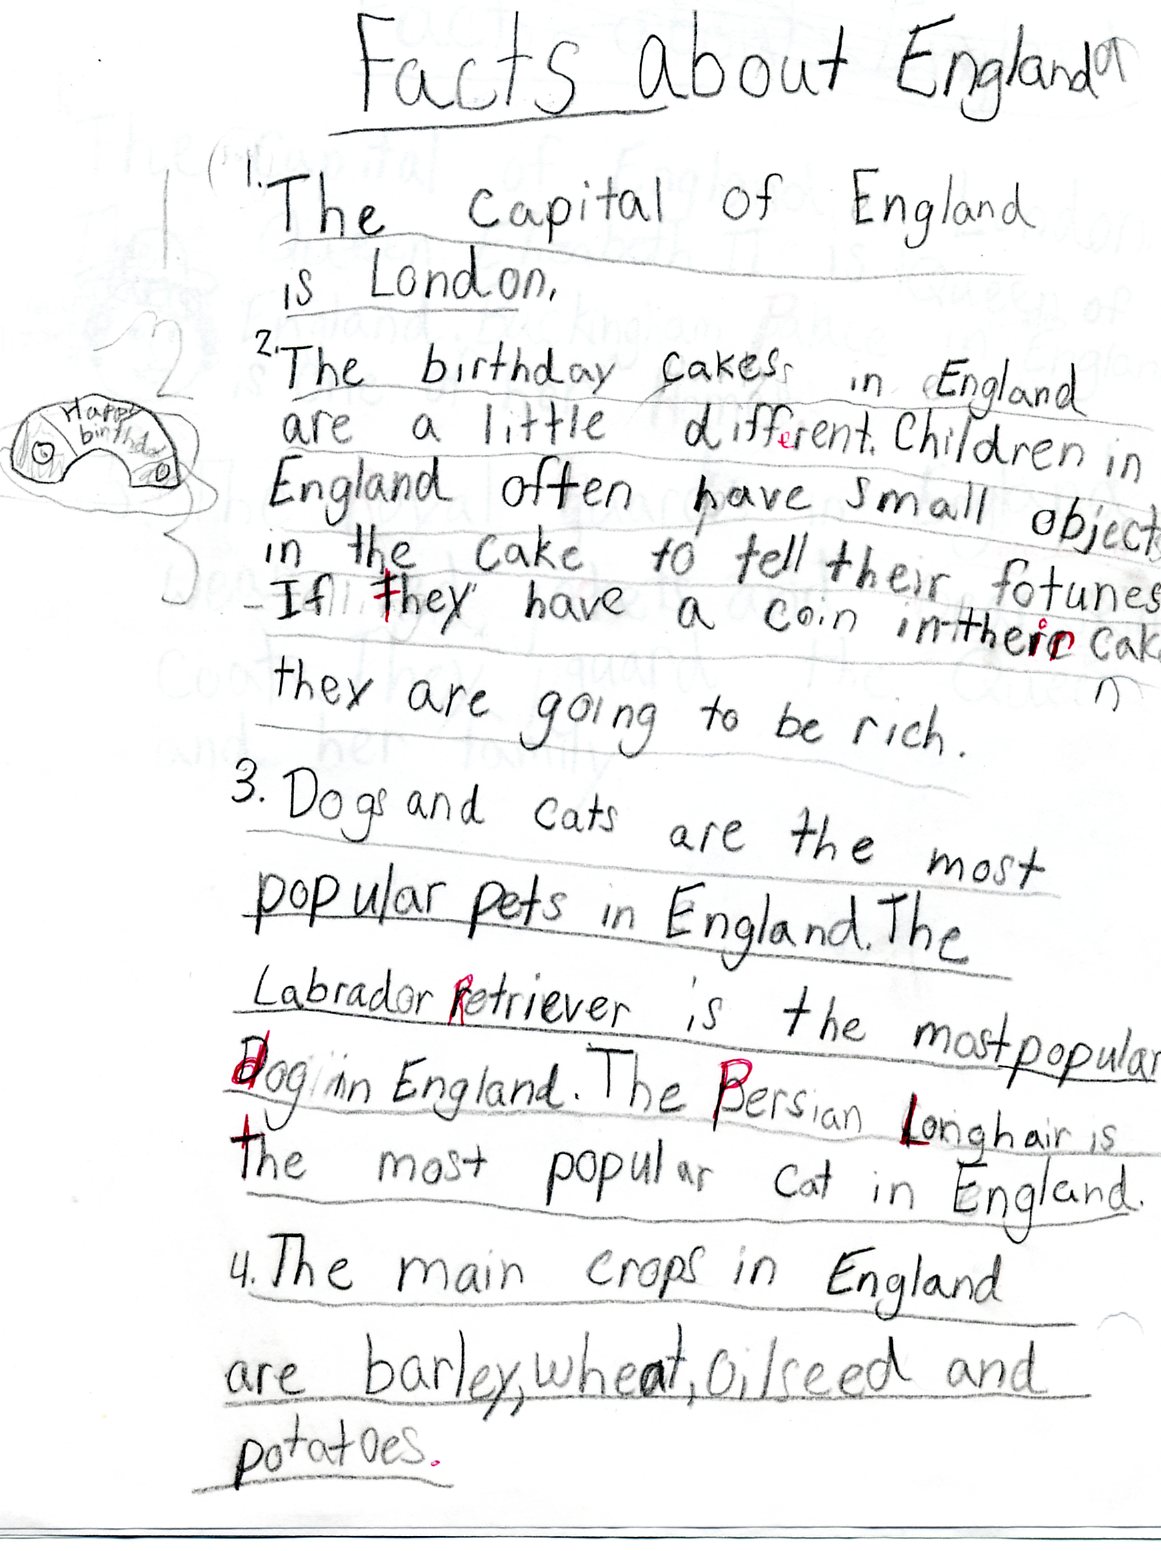 Facts about England
1. The capital of England
is London.
2. The birthday cakes in England
are a little different. Children in
England often have small objects
in the cake to tell their fotunes
- If they have a coin in their cak
they are going to be rich.
Happy
birthday
3. Dogs and cats are the most
popular pets in England. The
Labrador Retriever is the most popular
dog in England. The Persian Longhair is
the most popular cat in England.
4. The main crops in England
are barley, wheat, oilseed and
potatoes.